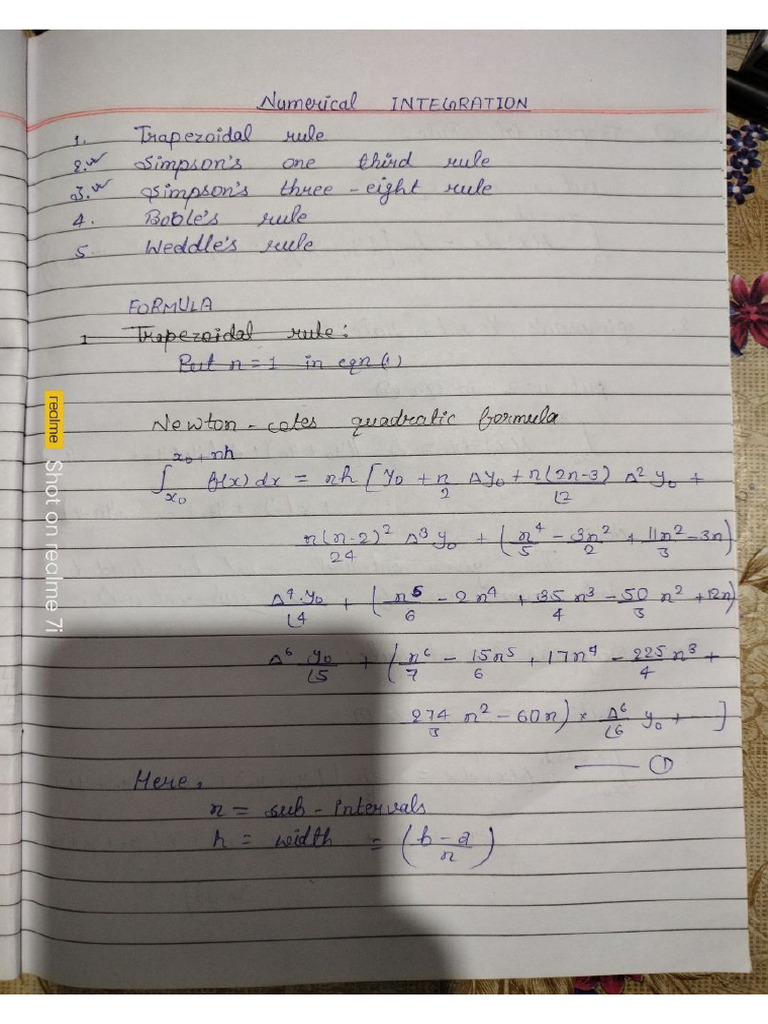 Numerical INTEGRATION
1. Trapezoidal rule
2. Simpson's one third rule
3. Simpson's three-eight rule
4. Boole's rule
5. Weddle's rule
FORMULA
1 Trapezoidal rule:
Put n=1 in eqn (1)
Newton-cotes quadratic formula
∫_{x₀}^{x₀+nh} f(x) dx = nh [y₀ + n/2 Δy₀ + n(2n-3)/12 Δ² y₀ +
n(n-2)²/24 Δ³ y₀ + (n⁴/5 - 3n²/2 + 11n²/3 - 3n)
Δ⁴ y₀/⌊4 + (n⁵/6 - 2n⁴ + 35/4 n³ - 50/3 n² + 12n)
Δ⁶ y₀/⌊5 + (n⁶/7 - 15n⁵/6 + 17n⁴ - 225/4 n³ +
274/3 n² - 60n) × Δ⁶/⌊6 y₀ + ---]
—— ①
Here,
n = sub-intervals
h = width = (b-a/n)
realme Shot on realme 7i